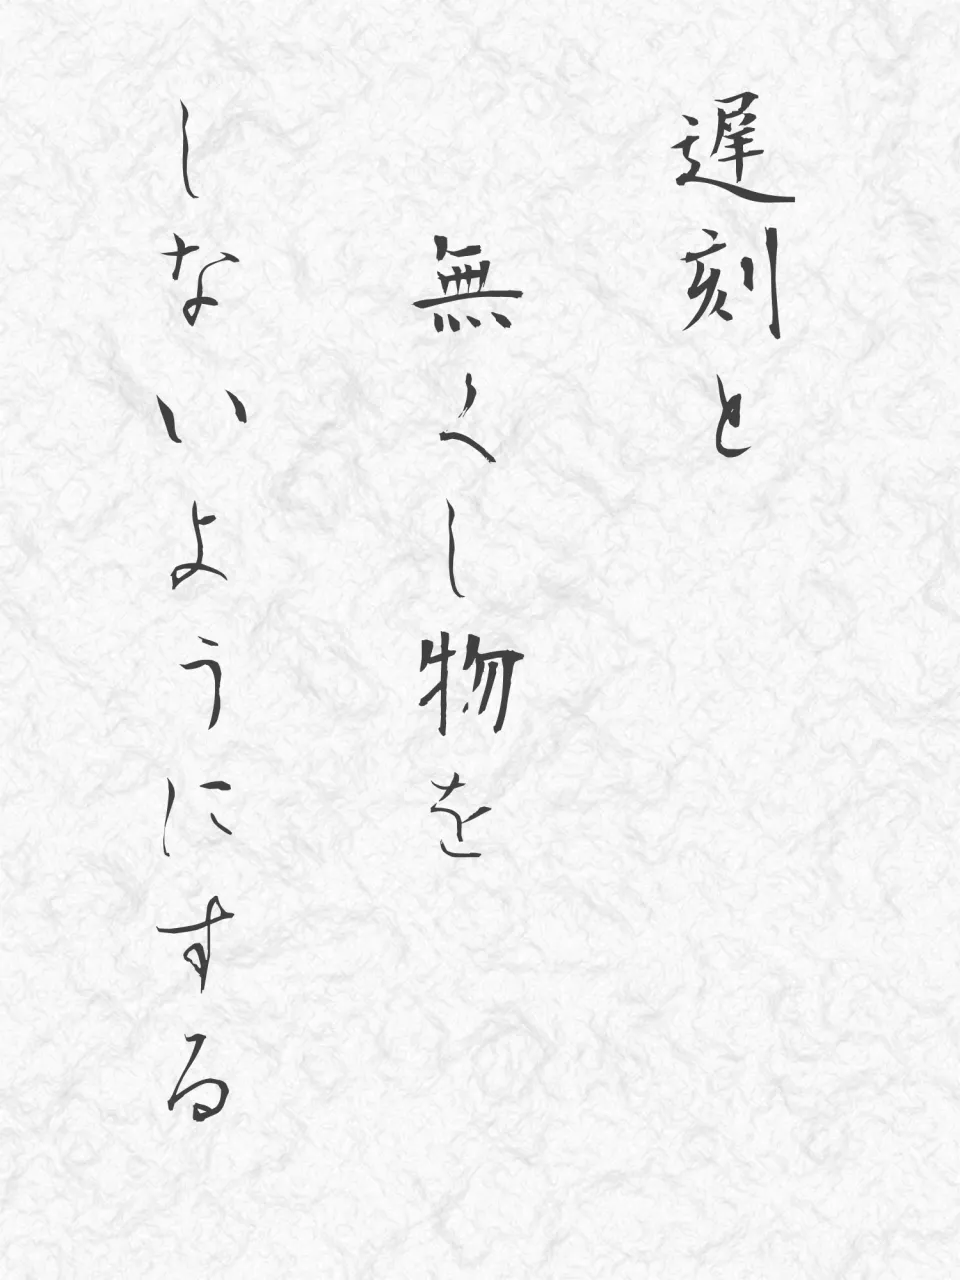 遅刻と
無くし物を
しないようにする